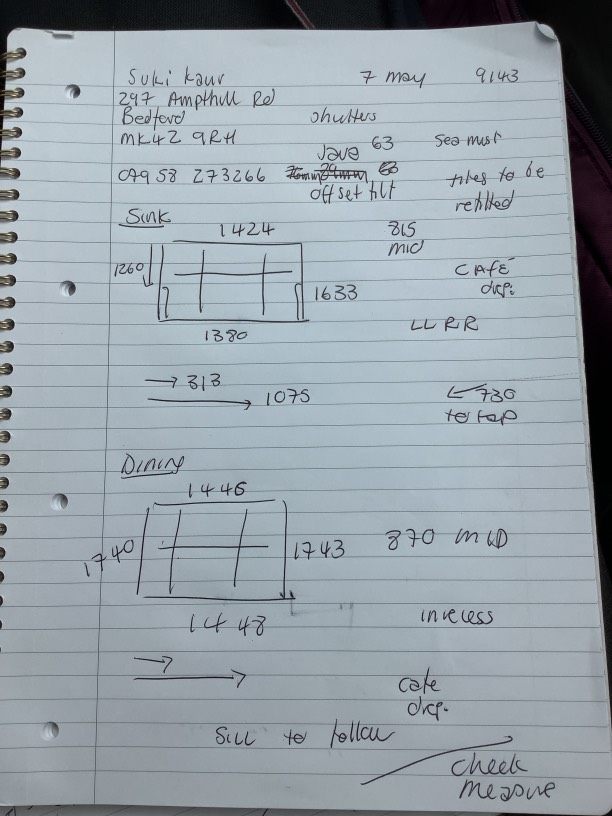 Suki Kaur 7 may 9143
297 Ampthill Rd
Bedford shutters
MK42 9RH
Java 63 Sea mist
0795 8 273266 76mm 29mm 63 tiles to be
offset tilt refitted
Sink
1424 815
mid
1260 1633 CAFÉ
1380 LL RR
→ 313
→ 1075 ← 730
to tap
Dining
1446
1740 1743 870 MID
1448 in recess
cafe
Sill to follow
check
measure